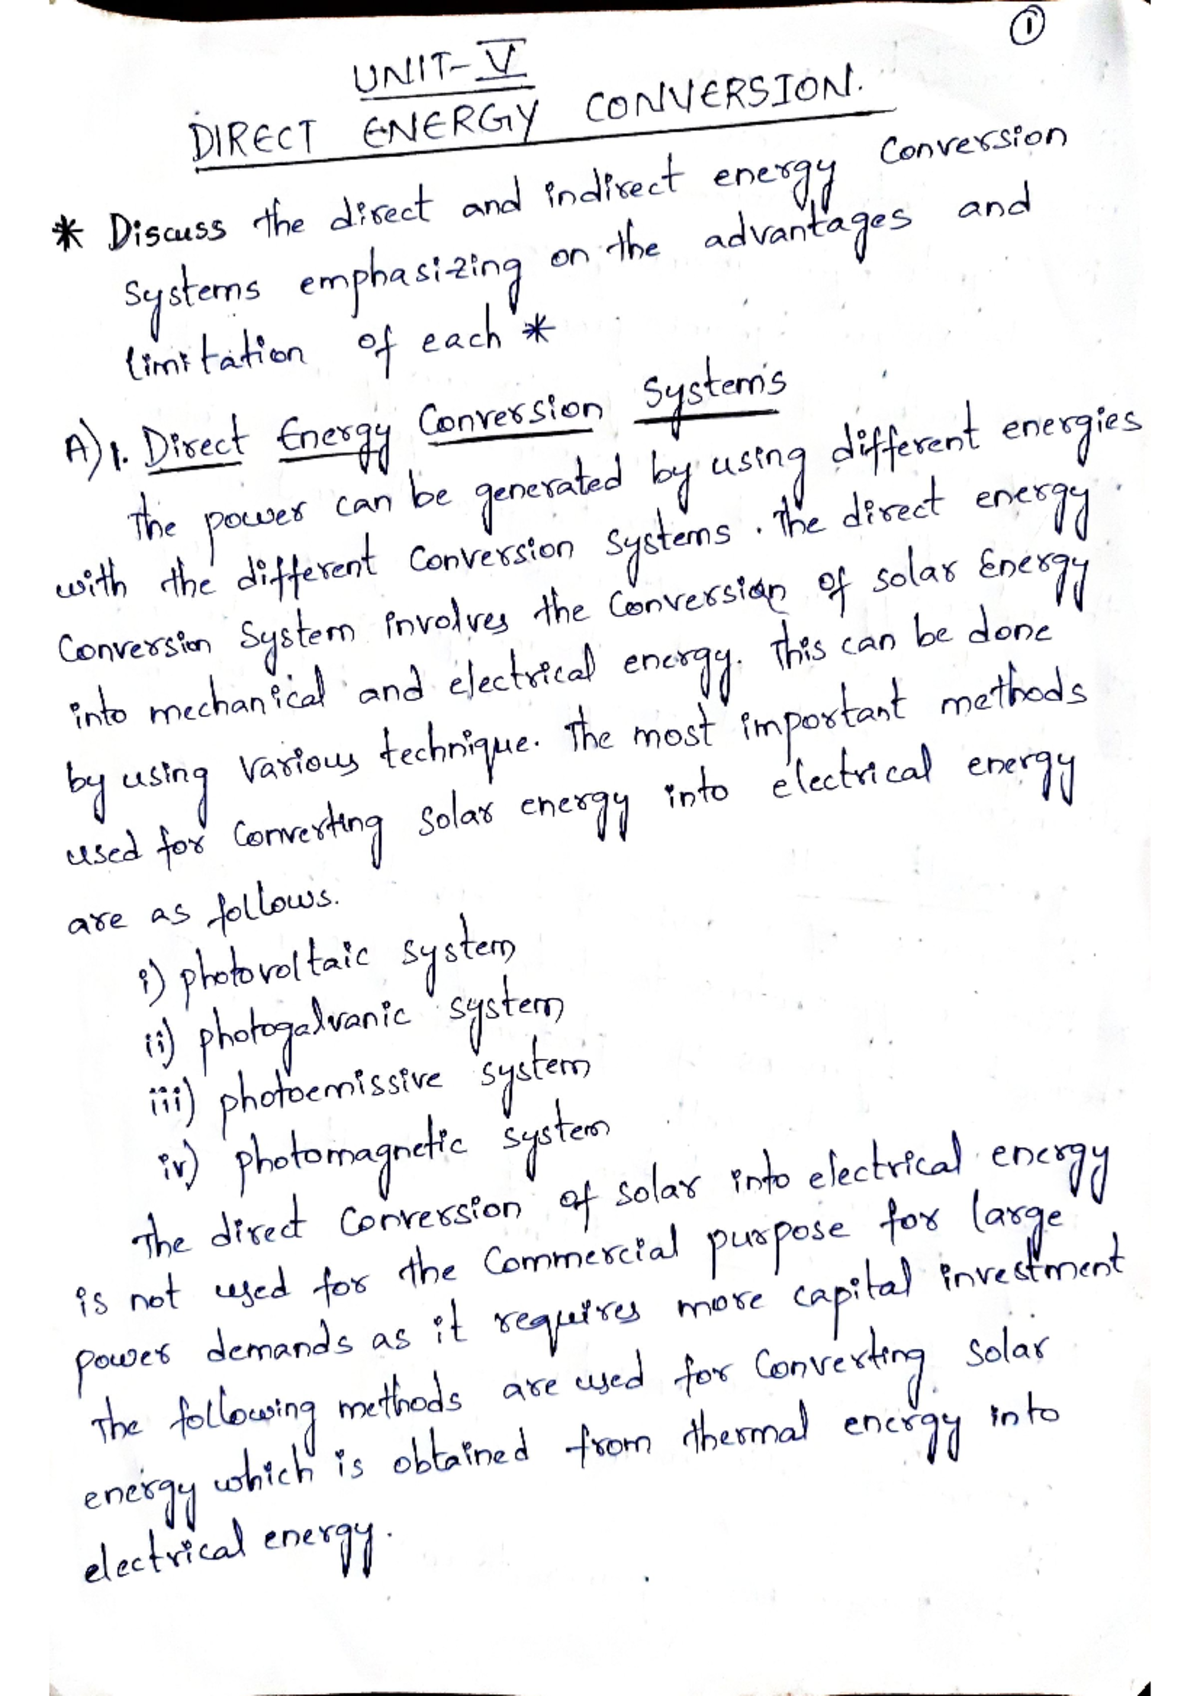 ①
UNIT-V
DIRECT ENERGY CONVERSION.
* Discuss the direct and indirect energy Conversion
systems emphasizing on the advantages and
limitation of each *
A) 1. Direct Energy Conversion System's
The power can be generated by using different energies
with the different Conversion systems. The direct energy
Conversion System involves the Conversion of solar Energy
into mechanical and electrical energy. This can be done
by using Various technique. The most important methods
used for Converting Solar energy into electrical energy
are as follows.
i) photovoltaic system
ii) photogalvanic system
iii) photoemissive system
iv) photomagnetic system
The direct Conversion of solar into electrical energy
is not used for the Commercial purpose for large
power demands as it requires more capital investment
The following methods are used for Converting Solar
energy which is obtained from thermal energy into
electrical energy.